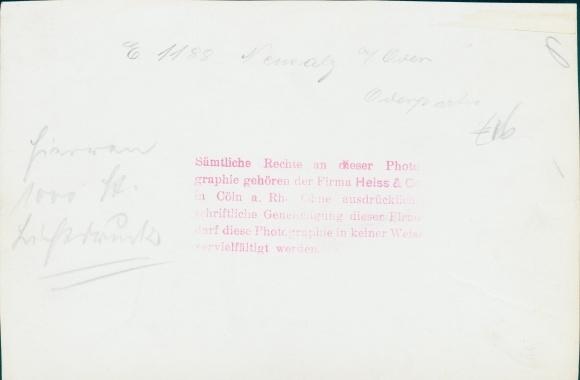 E 1188 Neusalz a/Oder
Oderpartie
hiervon
1000 St.
Lichtdruck
Sämtliche Rechte an dieser Photo
graphie gehören der Firma Heiss & Co
in Cöln a. Rh. Ohne ausdrücklich
schriftliche Genehmigung dieser Firma
darf diese Photographie in keiner Weise
vervielfältigt werden.